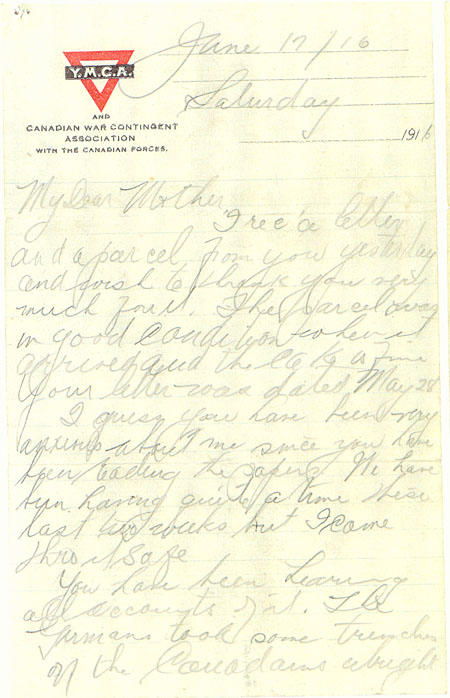 June 17/16
Y.M.C.A.
Saturday
AND
CANADIAN WAR CONTINGENT
ASSOCIATION
WITH THE CANADIAN FORCES.
1916
My dear Mother
I rec'd a letter
and a parcel from you yesterday
and wish to thank you very
much for it. The parcel was
in good condition when it
arrived and the cake is fine
Your letter was dated May 28
I guess you have been very
anxious about me since you have
been reading the papers. We have
bin having quite a time these
last two weeks but I come
thro it safe
You have been hearing
all accounts of it. The
Germans took some trenches
of the Canadians alright